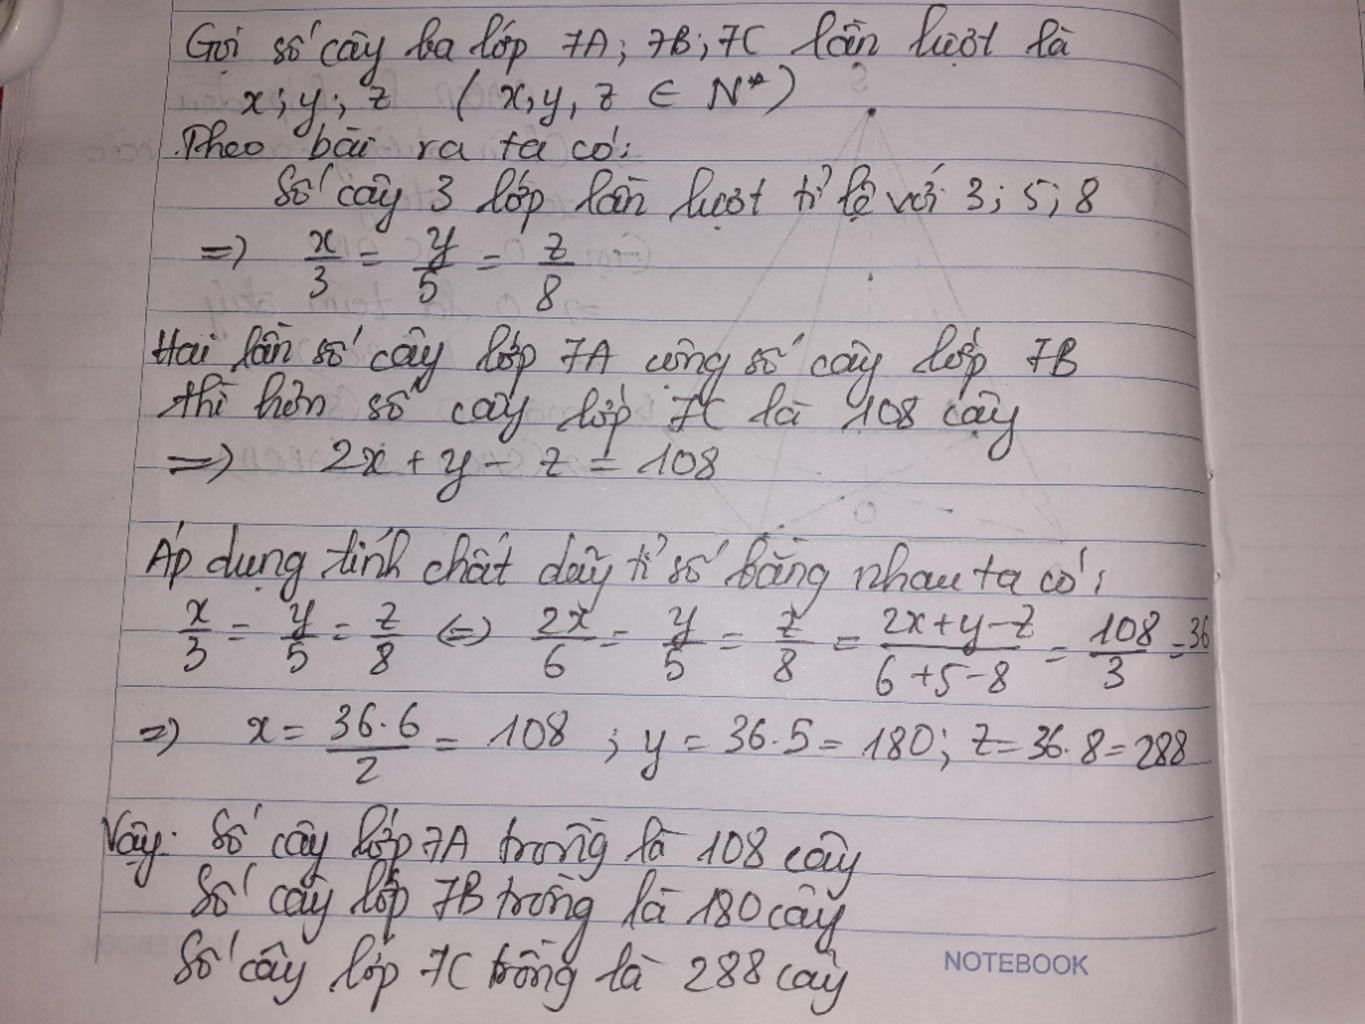 Gọi số cây ba lớp 7A; 7B; 7C lần lượt là
x; y; z ( x, y, z ∈ N*)
Theo bài ra ta có:
Số cây 3 lớp lần lượt tỉ lệ với 3; 5; 8
=> x/3 = y/5 = z/8
Hai lần số cây lớp 7A cộng số cây lớp 7B
thì hơn số cây lớp 7C là 108 cây
=> 2x + y - z = 108
Áp dụng tính chất dãy tỉ số bằng nhau ta có:
x/3 = y/5 = z/8 <=> 2x/6 = y/5 = z/8 = (2x+y-z)/(6+5-8) = 108/3 = 36
=> x = (36.6)/2 = 108 ; y = 36.5 = 180; z = 36.8 = 288
Vậy: Số cây lớp 7A trồng là 108 cây
Số cây lớp 7B trồng là 180 cây
Số cây lớp 7C trồng là 288 cây
NOTEBOOK